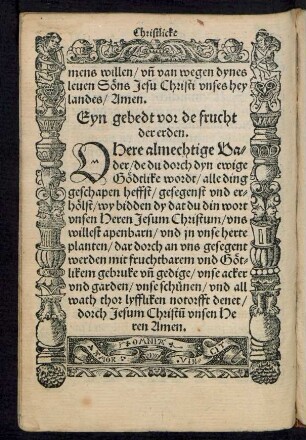 Christlicke
mens willen / vñ van wegen dynes
leuen Söns Jesu Christi vnses hey
landes / Amen.
Eyn gebedt vor de frucht
der erden.
O Here almechtige Va-
der / de du dorch dyn ewige
Gödtlike wordt / alle ding
geschapen heffst / gesegenst vnd er-
hölst / wy bidden dy dat du din wort
vnsen Heren Jesum Christum / vns
willest apenbarn / vnd jn vnse herte
planten / dar dorch an vns gesegent
werden mit fruchtbarem vnd Göt-
likem gebruke vñ gedige / vnse acker
vnd garden / vnse schünen / vnd all
wath thor lyffliken notorfft denet /
dorch Jesum Christũ vnsen He
ren Amen.
OMNIA
AMOR
VINCIT